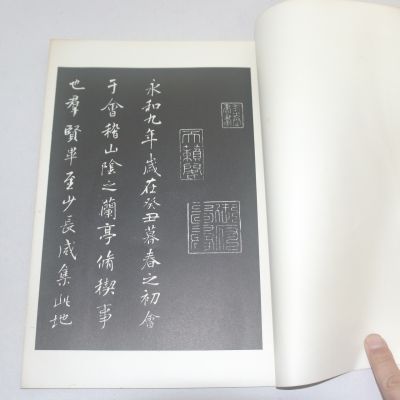 永和九年歲在癸丑暮春之初會
于會稽山陰之蘭亭脩稧事
也羣賢畢至少長咸集此地
天籟閣